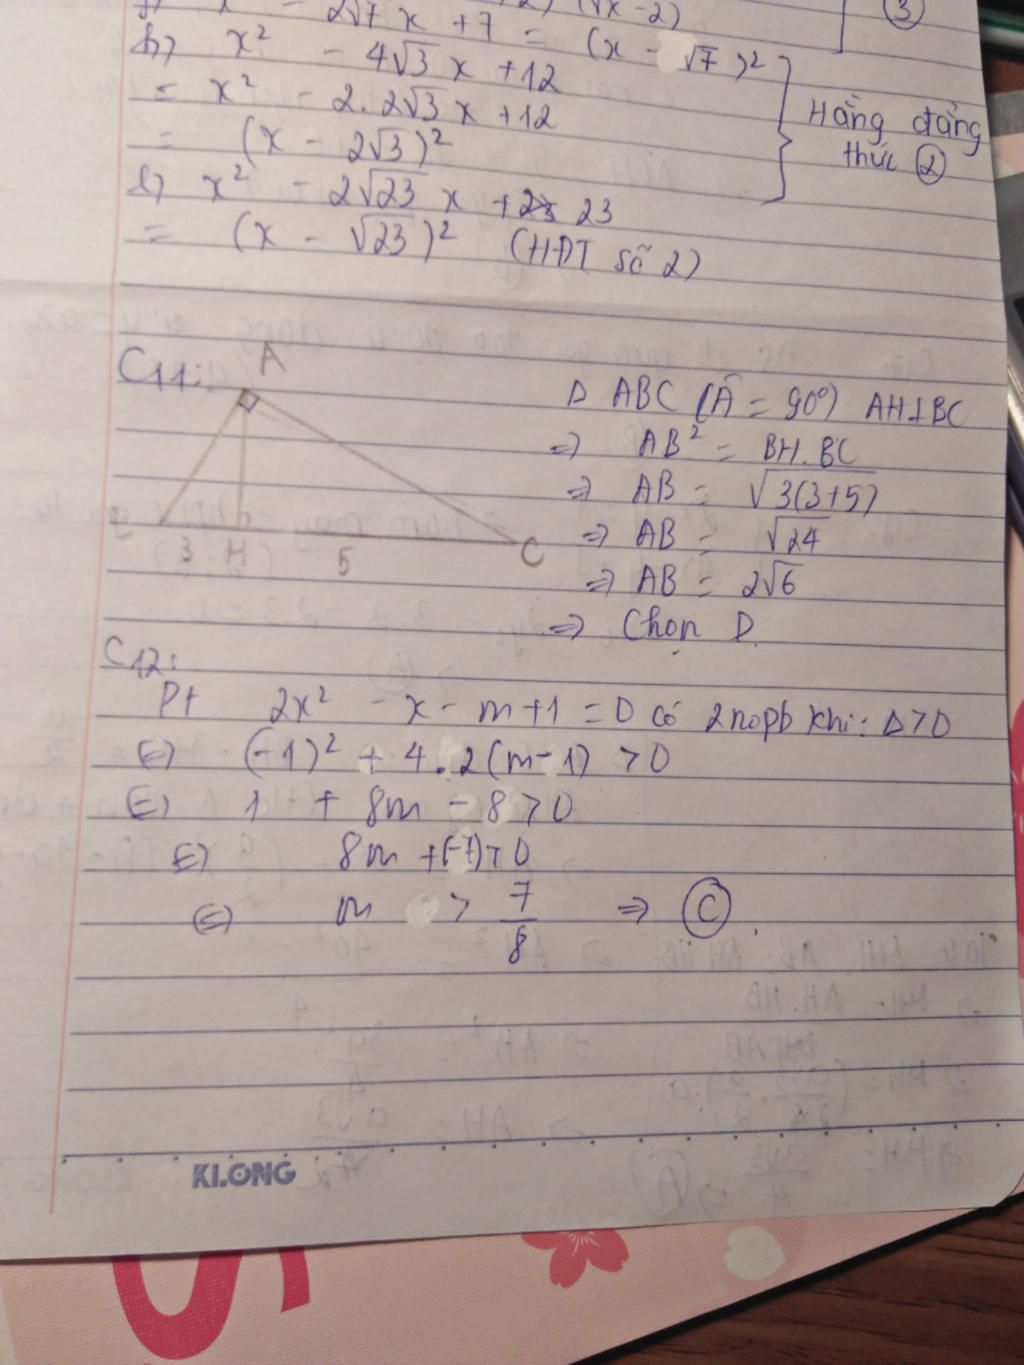 x² - 2√7 x + 7 = (x - √7)²
h) x² - 4√3 x + 12
= x² - 2. 2√3 x + 12
= (x - 2√3)²
Hằng đẳng thức ②
③
l) x² - 2√23 x + 23
= (x - √23)² (HĐT số 2)
C11:
A
B 3 H 5 C
Δ ABC (Â = 90°) AH⊥BC
=> AB² = BH.BC
=> AB = √3(3+5)
=> AB = √24
=> AB = 2√6
=> Chọn D
C12:
Pt 2x² - x - m + 1 = 0 có 2nopb khi: Δ > 0
<=> (-1)² + 4.2(m-1) > 0
<=> 1 + 8m - 8 > 0
<=> 8m + (-7) > 0
<=> m > 7/8 => Ⓒ.
KLONG